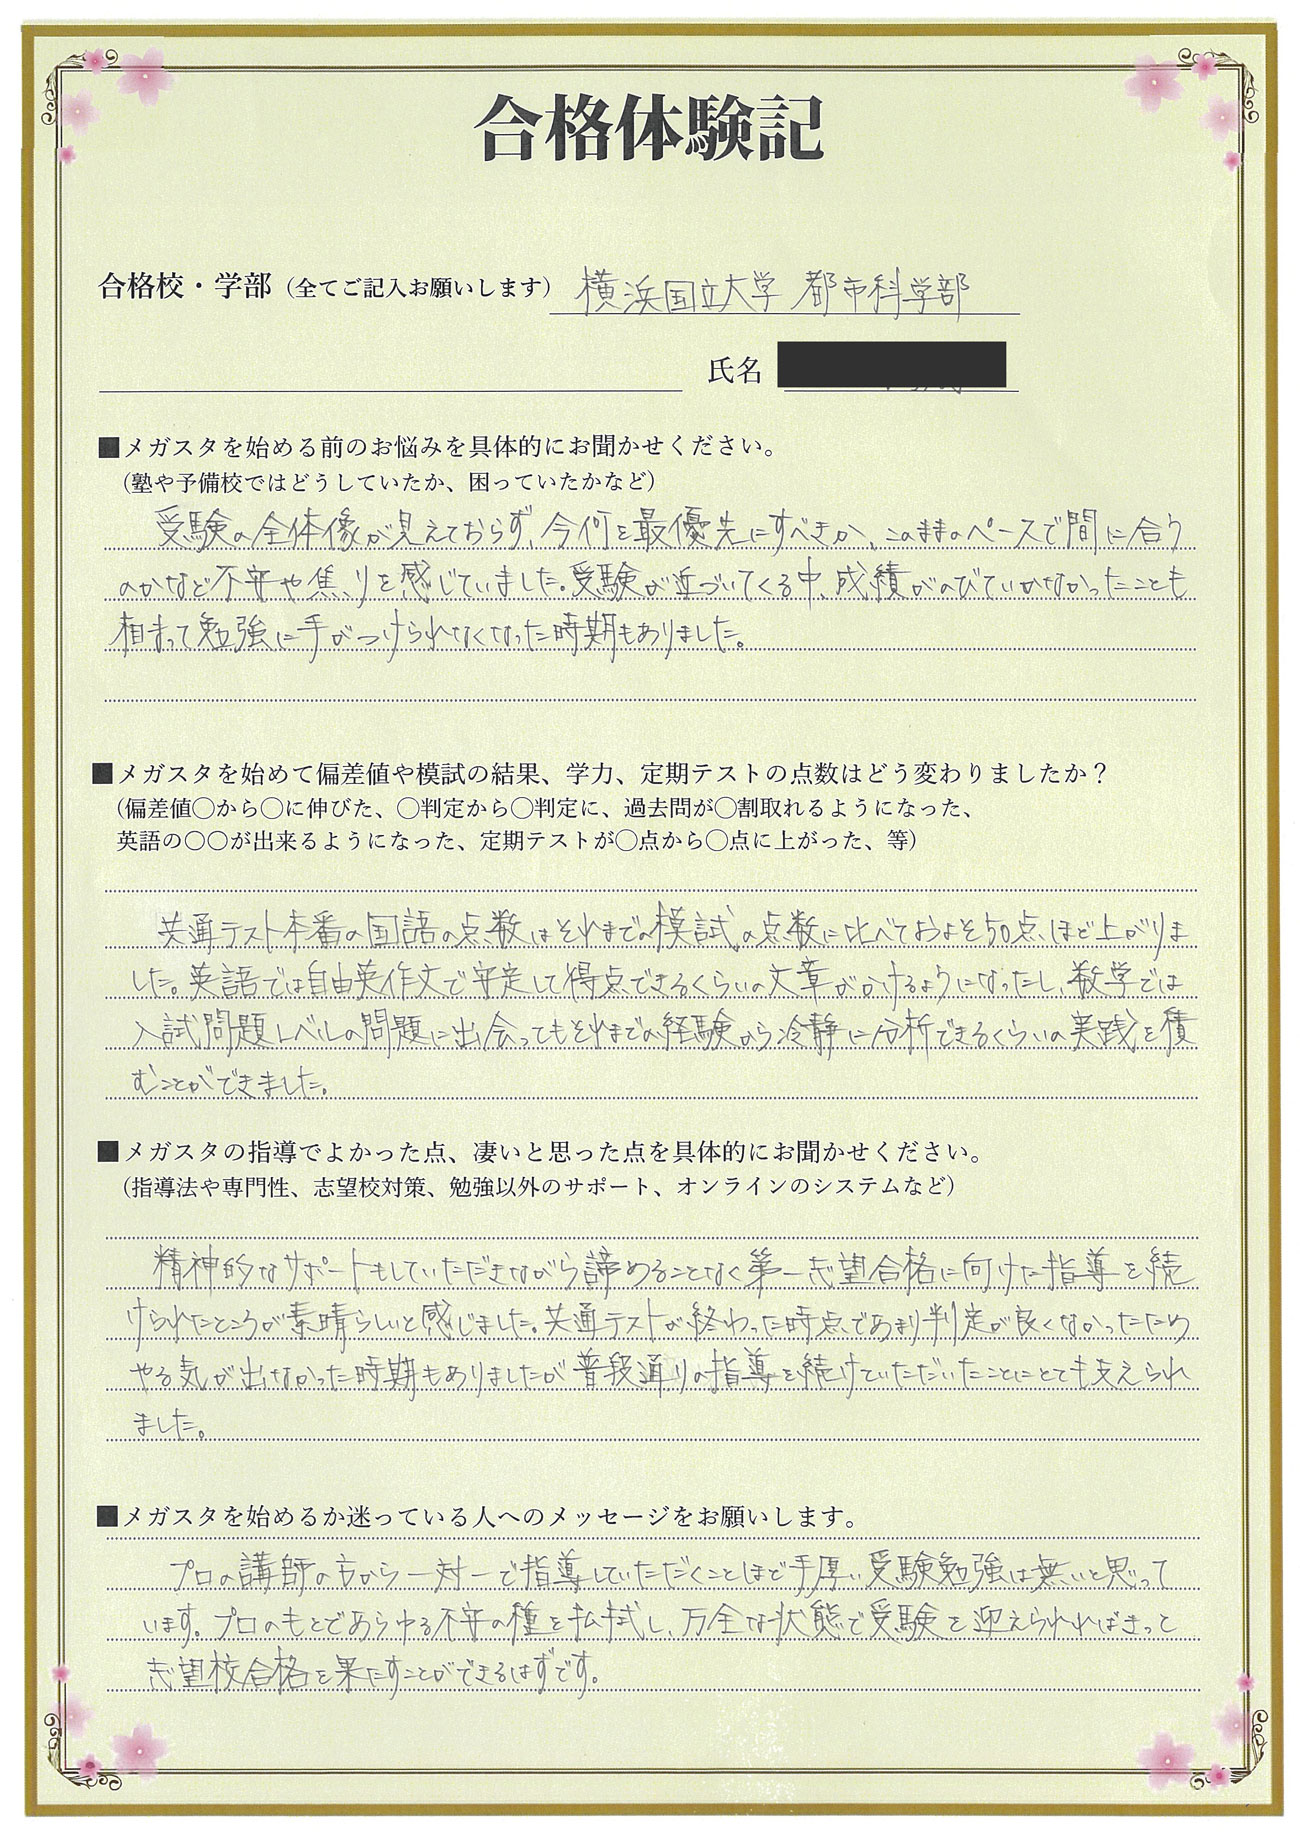 合格体験記
合格校・学部（全てご記入お願いします） 横浜国立大学 都市科学部
氏名
■メガスタを始める前のお悩みを具体的にお聞かせください。
（塾や予備校ではどうしていたか、困っていたかなど）
受験の全体像が見えておらず、今何を最優先にすべきか、このままのペースで間に合う
のかなど不安や焦りを感じていました。受験が近づいてくる中、成績がのびていかなかったことも
相まって勉強に手がつけられなくなった時期もありました。
■メガスタを始めて偏差値や模試の結果、学力、定期テストの点数はどう変わりましたか？
（偏差値○から○に伸びた、○判定から○判定に、過去問が○割取れるようになった、
英語の○○が出来るようになった、定期テストが○点から○点に上がった、等）
共通テスト本番の国語の点数はそれまでの模試の点数に比べておよそ50点ほど上がりま
した。英語では自由英作文で安定して得点できるくらいの文章がかけるようになったし、数学では
入試問題レベルの問題に出会ってもそれまでの経験から冷静に分析できるくらいの実践を積
むことができました。
■メガスタの指導でよかった点、凄いと思った点を具体的にお聞かせください。
（指導法や専門性、志望校対策、勉強以外のサポート、オンラインのシステムなど）
精神的なサポートもしていただきながら諦めることなく第一志望合格に向けた指導を続
けられたところが素晴らしいと感じました。共通テストが終わった時点であまり判定が良くなかったため
やる気が出なかった時期もありましたが普段通りの指導を続けていただいたことにとても支えられ
ました。
■メガスタを始めるか迷っている人へのメッセージをお願いします。
プロの講師の方から一対一で指導していただくことほど手厚い受験勉強は無いと思って
います。プロのもとであらゆる不安の種を払拭し、万全な状態で受験を迎えられればきっと
志望校合格を果たすことができるはずです。